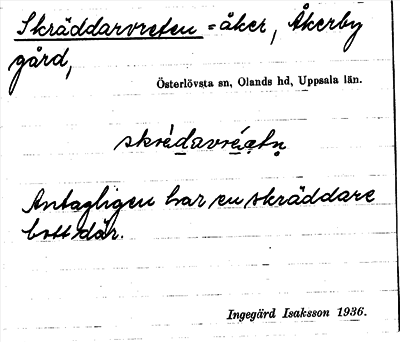 Skräddarvreten = åker, Åkerby
gård,
Österlövsta sn, Olands hd, Uppsala län.
skrèdavréatn̥
Antagligen har en skräddare
bott där.
Ingegärd Isaksson 1936.